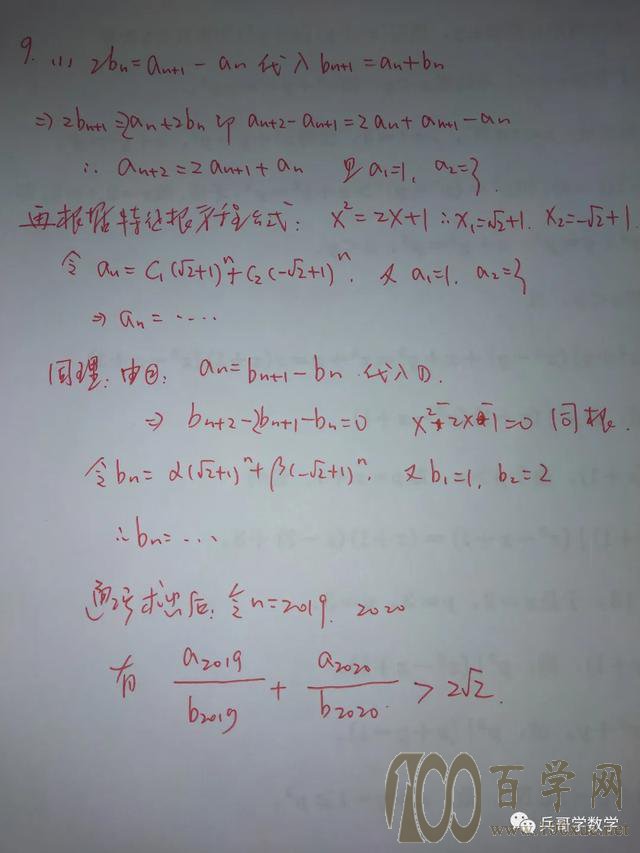 9. (1) 2bn = an+1 - an 代入 bn+1 = an + bn
⇒ 2bn+1 = 2an + 2bn 即 an+2 - an+1 = 2an + an+1 - an
∴ an+2 = 2an+1 + an 且 a1=1, a2=3.
再根据特征根方程公式: x² = 2x+1 ∴ x1=√2+1. x2=-√2+1
令 an = C1(√2+1)ⁿ + C2(-√2+1)ⁿ. 又 a1=1, a2=3
⇒ an = ·····
同理: 由②: an = bn+1 - bn 代入①.
⇒ bn+2 - 2bn+1 - bn = 0 x² - 2x - 1 = 0 同根.
令 bn = α(√2+1)ⁿ + β(-√2+1)ⁿ. 又 b1=1, b2=2
∴ bn = ···
通项求出后: 令 n=2019. 2020
有 a2019/b2019 + a2020/b2020 > 2√2.
100百学网
兵哥学数学